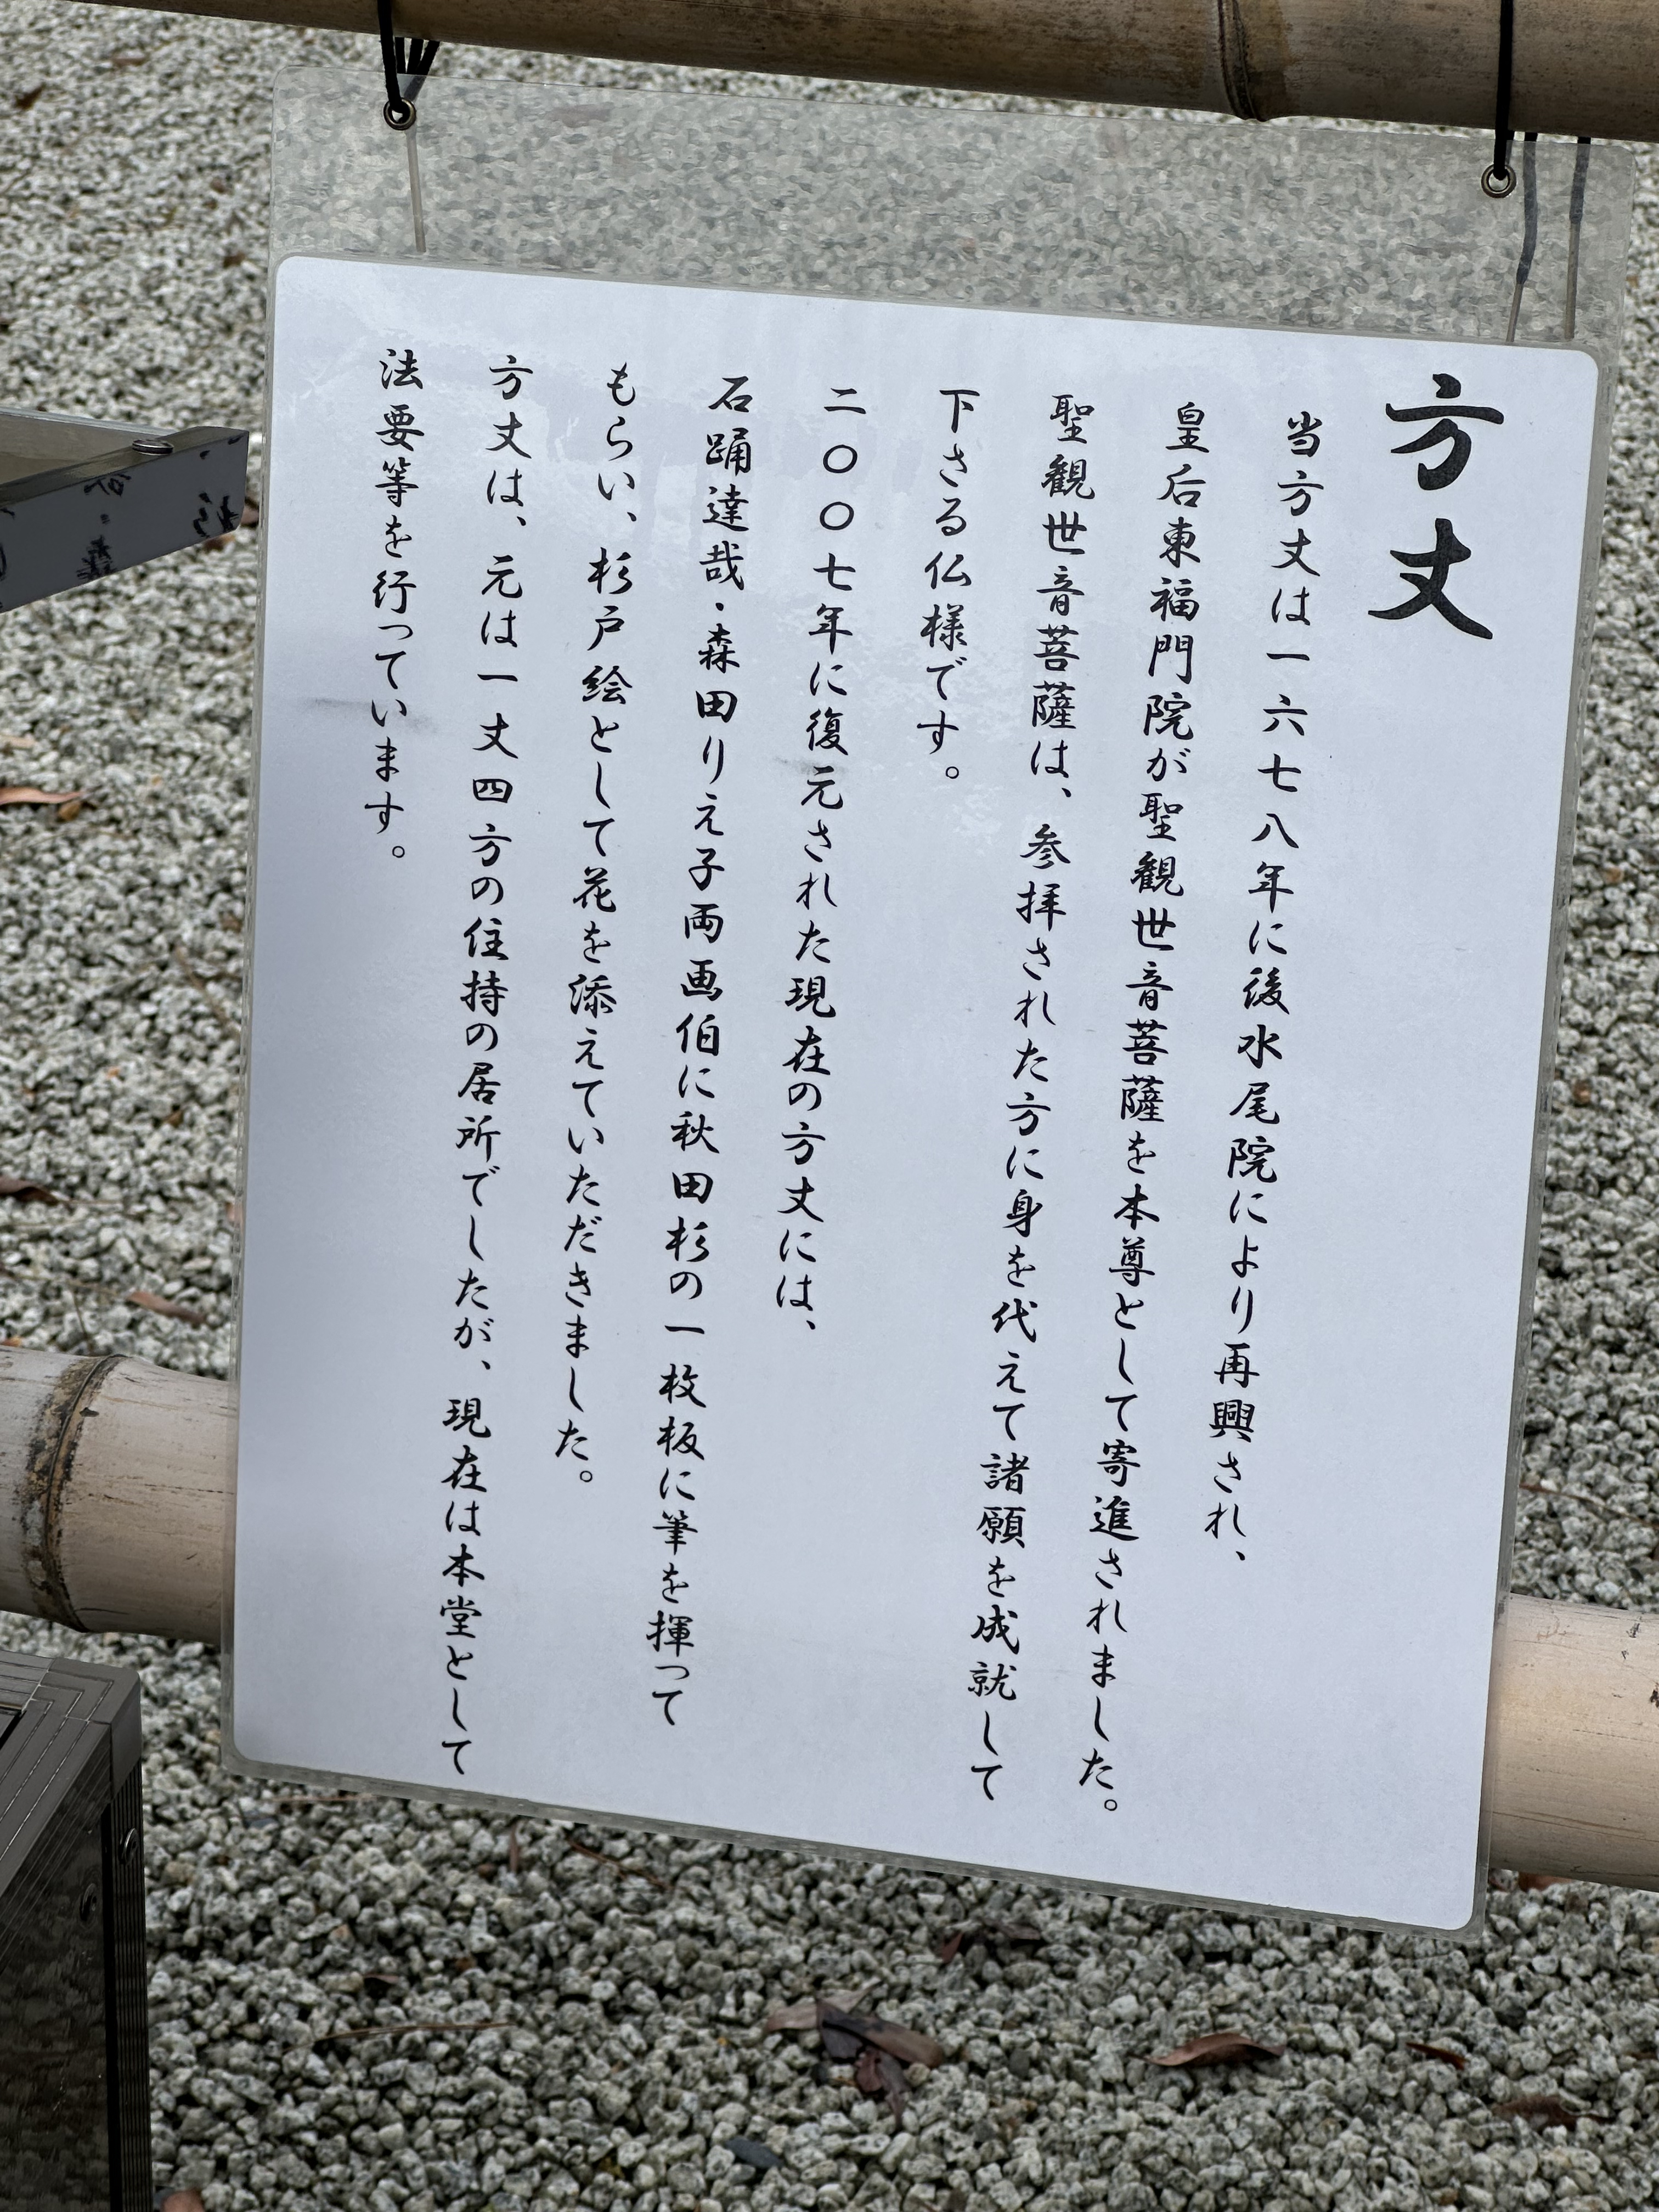 方丈
当方丈は一六七八年に後水尾院により再興され、
皇后東福門院が聖観世音菩薩を本尊として寄進されました。
聖観世音菩薩は、参拝された方に身を代えて諸願を成就して
下さる仏様です。
二〇〇七年に復元された現在の方丈には、
石踊達哉・森田りえ子両画伯に秋田杉の一枚板に筆を揮って
もらい、杉戸絵として花を添えていただきました。
方丈は、元は一丈四方の住持の居所でしたが、現在は本堂として
法要等を行っています。